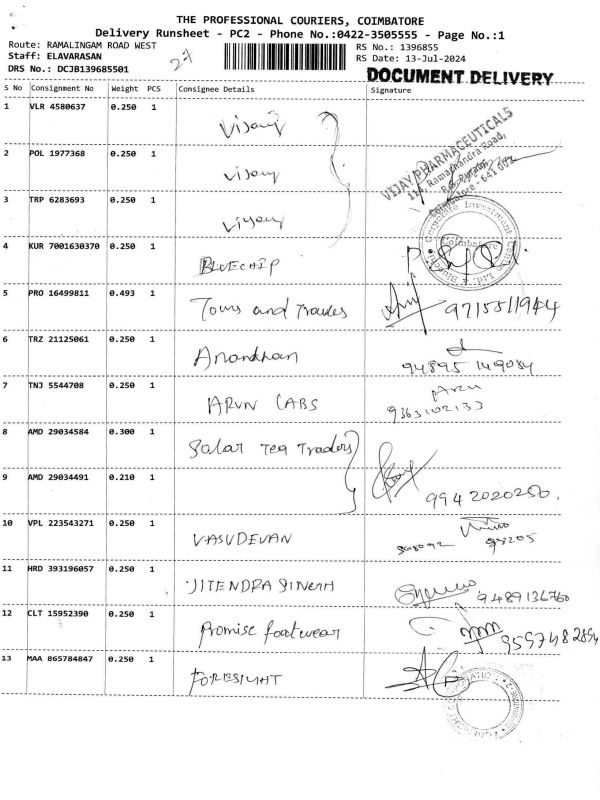 THE PROFESSIONAL COURIERS, COIMBATORE
Delivery Runsheet - PC2 - Phone No.:0422-3505555 - Page No.:1
Route: RAMALINGAM ROAD WEST RS No.: 1396855
Staff: ELAVARASAN 27 RS Date: 13-Jul-2024
DRS No.: DCJB139685501 DOCUMENT DELIVERY
S No Consignment No Weight PCS Consignee Details Signature
1 VLR 4580637 0.250 1 Vijay
VIJAY PHARMACEUTICALS
114, Ramachandra Road,
Coimbatore - 641 002
2 POL 1977368 0.250 1 Vijay
3 TRP 6283693 0.250 1 Vijay
4 KUR 7001630370 0.250 1 BLUECHIP
Coimbatore
5 PRO 16499811 0.493 1 Tours and Travels 9715511944
6 TRZ 21125061 0.250 1 Anandhan 94895 149084
7 TNJ 5544708 0.250 1 ARUN LABS 9363102133
8 AMD 29034584 0.300 1 Salar Tea Traders
9 AMD 29034491 0.210 1 9942020250.
10 VPL 223543271 0.250 1 VASUDEVAN 98205
11 HRD 393196057 0.250 1 JITENDRA SINGH 9489136760
12 CLT 15952390 0.250 1 Promise footwear 9597482894
13 MAA 865784847 0.250 1 FORESIGHT